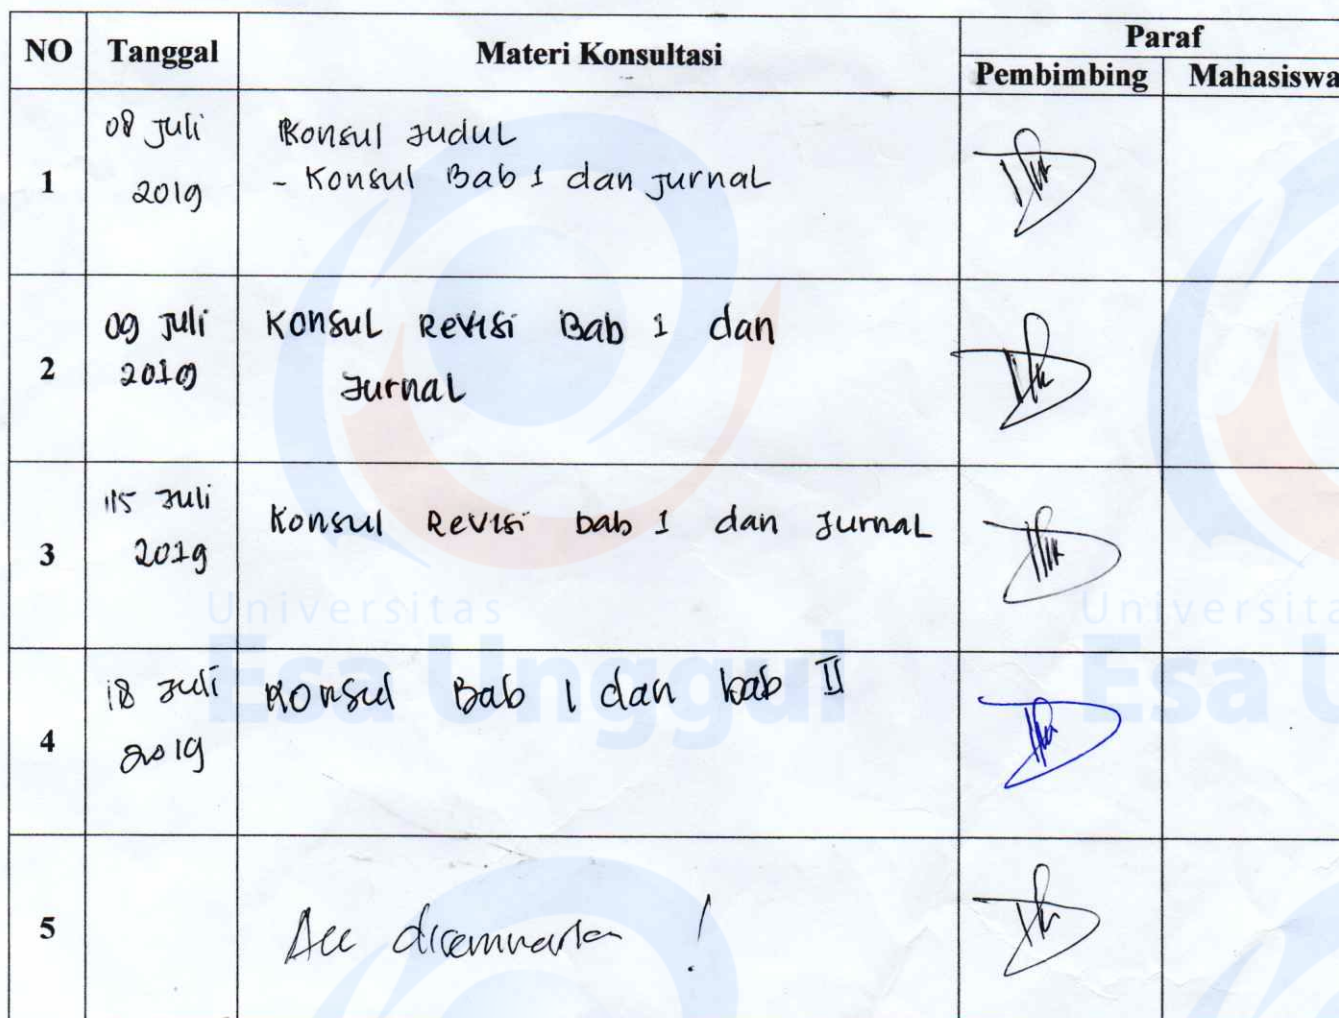 NO Tanggal Materi Konsultasi Paraf
Pembimbing Mahasiswa
1 08 Juli 2019 Konsul Judul
- Konsul Bab 1 dan Jurnal
2 09 Juli 2019 Konsul Revisi Bab 1 dan
Jurnal
3 15 Juli 2019 Konsul Revisi bab 1 dan Jurnal
4 18 Juli 2019 Konsul Bab 1 dan bab II
5 Acc !
Universitas
Esa Unggul
Universita
Esa U